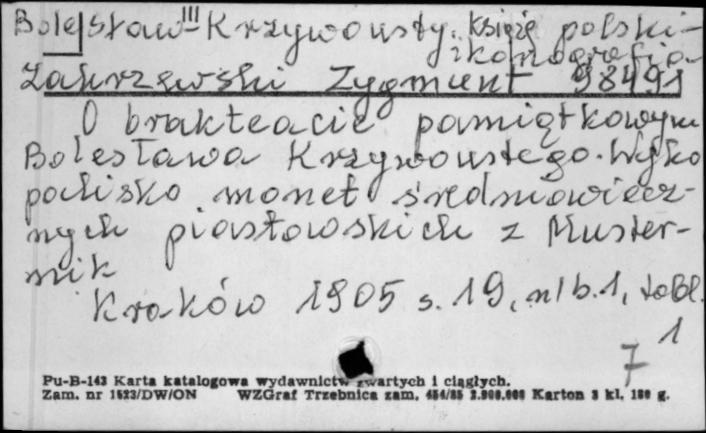 Bolesław III Krzywousty, książę polski -
ikonografia
Zakrzewski Zygmunt 98491
O brakteacie pamiątkowym
Bolesława Krzywoustego. Wyko
palisko monet średniowiecz-
nych piastowskich z Muster-
nik
Kraków 1905 s. 19, nlb. 1, tabl.
1
7
Pu-B-143 Karta katalogowa wydawnictw zwartych i ciągłych.
Zam. nr 1523/DW/ON WZGraf Trzebnica zam. 454/85 2.000.000 Karton 3 kl. 180 g.